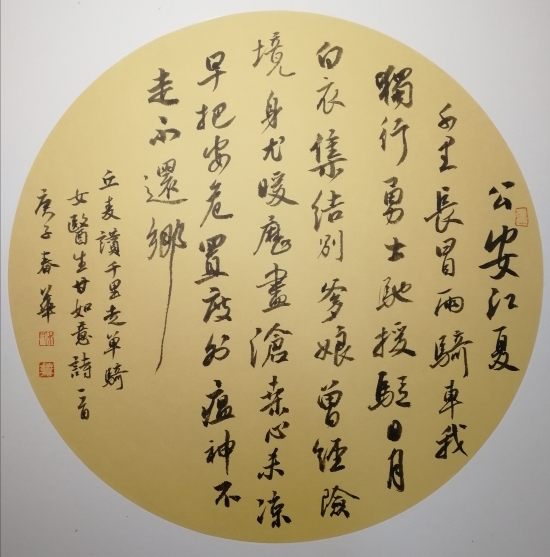 公安江夏
千里長冒雨騎車我
獨行勇士馳援駈日月
白衣集結別爹娘曾經險
境身尤暖歷盡滄桒心未凉
早把安危置度外瘟神不
走不還鄉
丘麦讀千里走單騎
女醫生甘如意詩一首
庚子春華